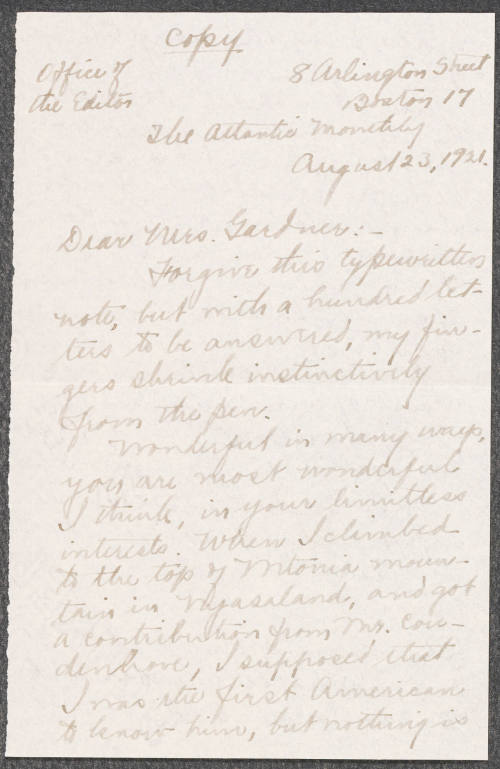 Copy
Office of
the Editor
8 Arlington Street
Boston 17
The Atlantic Monthly
August 23, 1921.
Dear Mrs. Gardner:-
Forgive this typewritten
note, but with a hundred let-
ters to be answered, my fin-
gers shrink instinctively
from the pen.
Wonderful in many ways,
you are most wonderful
I think, in your limitless
interests. When I climbed
to the top of Mtonia moun-
tain in Nyasaland, and got
a contribution from Mr. Cou-
denhove, I supposed that
I was the first American
to know him, but nothing is